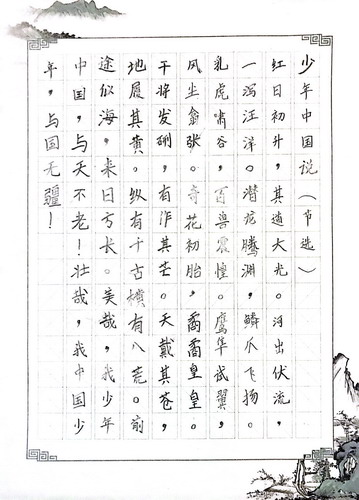 少年中国说（节选）
红日初升，其道大光。河出伏流，
一泻汪洋。潜龙腾渊，鳞爪飞扬。
乳虎啸谷，百兽震惶。鹰隼试翼，
风尘翕张。奇花初胎，矞矞皇皇。
干将发硎，有作其芒。天戴其苍，
地履其黄。纵有千古横有八荒。前
途似海，来日方长。美哉，我少年
中国，与天不老！壮哉，我中国少
年，与国无疆！